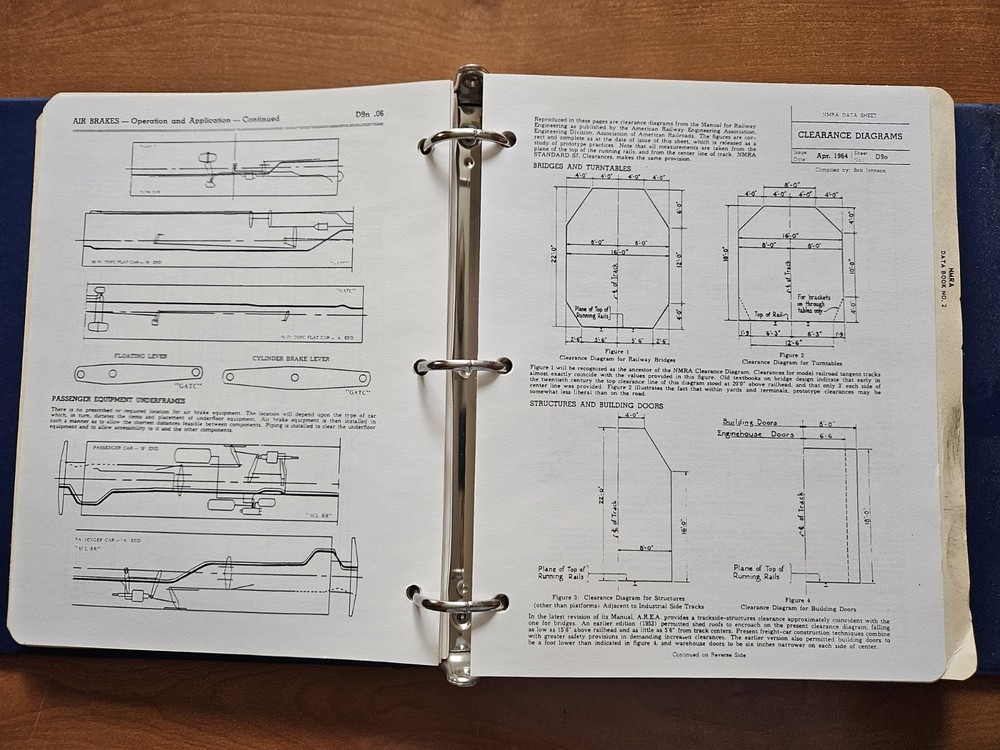 AIR BRAKES — Operation and Application — Continued
D9n .06
"GATC"
40 Ft TOFC FLAT CAR - 'B' END
"GATC"
"GATC"
40 Ft TOFC FLAT CAR - 'A' END
FLOATING LEVER
CYLINDER BRAKE LEVER
"GATC"
"GATC"
PASSENGER EQUIPMENT UNDERFRAMES
There is no prescribed or required location for air brake equipment. The location will depend upon the type of car
which, in turn, dictates the items and placement of underfloor equipment. Air brake equipment is then installed in
such a manner as to allow the shortest distances feasible between components. Piping is installed to clear the underfloor
equipment and to allow accessibility to it and the other components.
PASSENGER CAR - 'B' END
"ACL RR"
PASSENGER CAR - 'A' END
"ACL RR"
Reproduced in these pages are clearance diagrams from the Manual for Railway
Engineering as published by the American Railway Engineering Association,
Engineering Division, Association of American Railroads. The figures are cor-
rect and complete as at the date of issue of this sheet, which is released as a
study of prototype practices. Note that all measurements are taken from the
plane of the top of the running rails, and from the center line of track. NMRA
STANDARD S7, Clearances, makes the same provision.
NMRA DATA SHEET
CLEARANCE DIAGRAMS
Issue Date: Apr. 1964
Sheet No.: D9o
Compiled by: Bob Johnson
BRIDGES AND TURNTABLES
4'-0" 4'-0" 4'-0" 4'-0"
6'-0"
22'-0"
8'-0" 8'-0"
16'-0"
12'-0"
¢ of Track
Plane of Top of
Running Rails
4'-0"
2'-6" 5'-6" 5'-6" 2'-6"
Figure 1
Clearance Diagram for Railway Bridges
8'-0"
4'-0" 4'-0" 4'-0" 4'-0"
4'-0"
18'-0"
16'-0"
8'-0" 8'-0"
10'-0"
¢ of Track
For brackets
on through
tables only
Top of Rail
4'-0"
1'-9 6'-3" 6'-3" 1'-9
12'-6"
Figure 2
Clearance Diagram for Turntables
Figure 1 will be recognised as the ancestor of the NMRA Clearance Diagram. Clearances for model railroad tangent tracks
almost exactly coincide with the values provided in this figure. Old textbooks on bridge design indicate that early in
the twentieth century the top clearance line of this diagram stood at 20'0" above railhead, and that only 3' each side of
center line was provided. Figure 2 illustrates the fact that within yards and terminals, prototype clearances may be
somewhat less liberal than on the road.
STRUCTURES AND BUILDING DOORS
4'-0"
22'-0"
¢ of Track
16'-0"
8'-0"
Plane of Top of
Running Rails
Figure 3: Clearance Diagram for Structures
(other than platforms) Adjacent to Industrial Side Tracks
Building Doors 8'-0"
Enginehouse Doors 6-6
¢ of Track
18'-0"
Plane of Top of
Running Rails
Figure 4
Clearance Diagram for Building Doors
In the latest revision of its Manual, A.R.E.A. provides a trackside-structures clearance approximately coincident with the
one for bridges. An earlier edition (1953) permitted shed roofs to encroach on the present clearance diagram, falling
as low as 15'6" above railhead and as little as 5'6" from track centers. Present freight-car construction techniques combine
with greater safety provisions in demanding increased clearances. The earlier version also permitted building doors to
be a foot lower than indicated in figure 4, and warehouse doors to be six inches narrower on each side of center.
Continued on Reverse Side
NMRA
DATA BOOK NO. 2